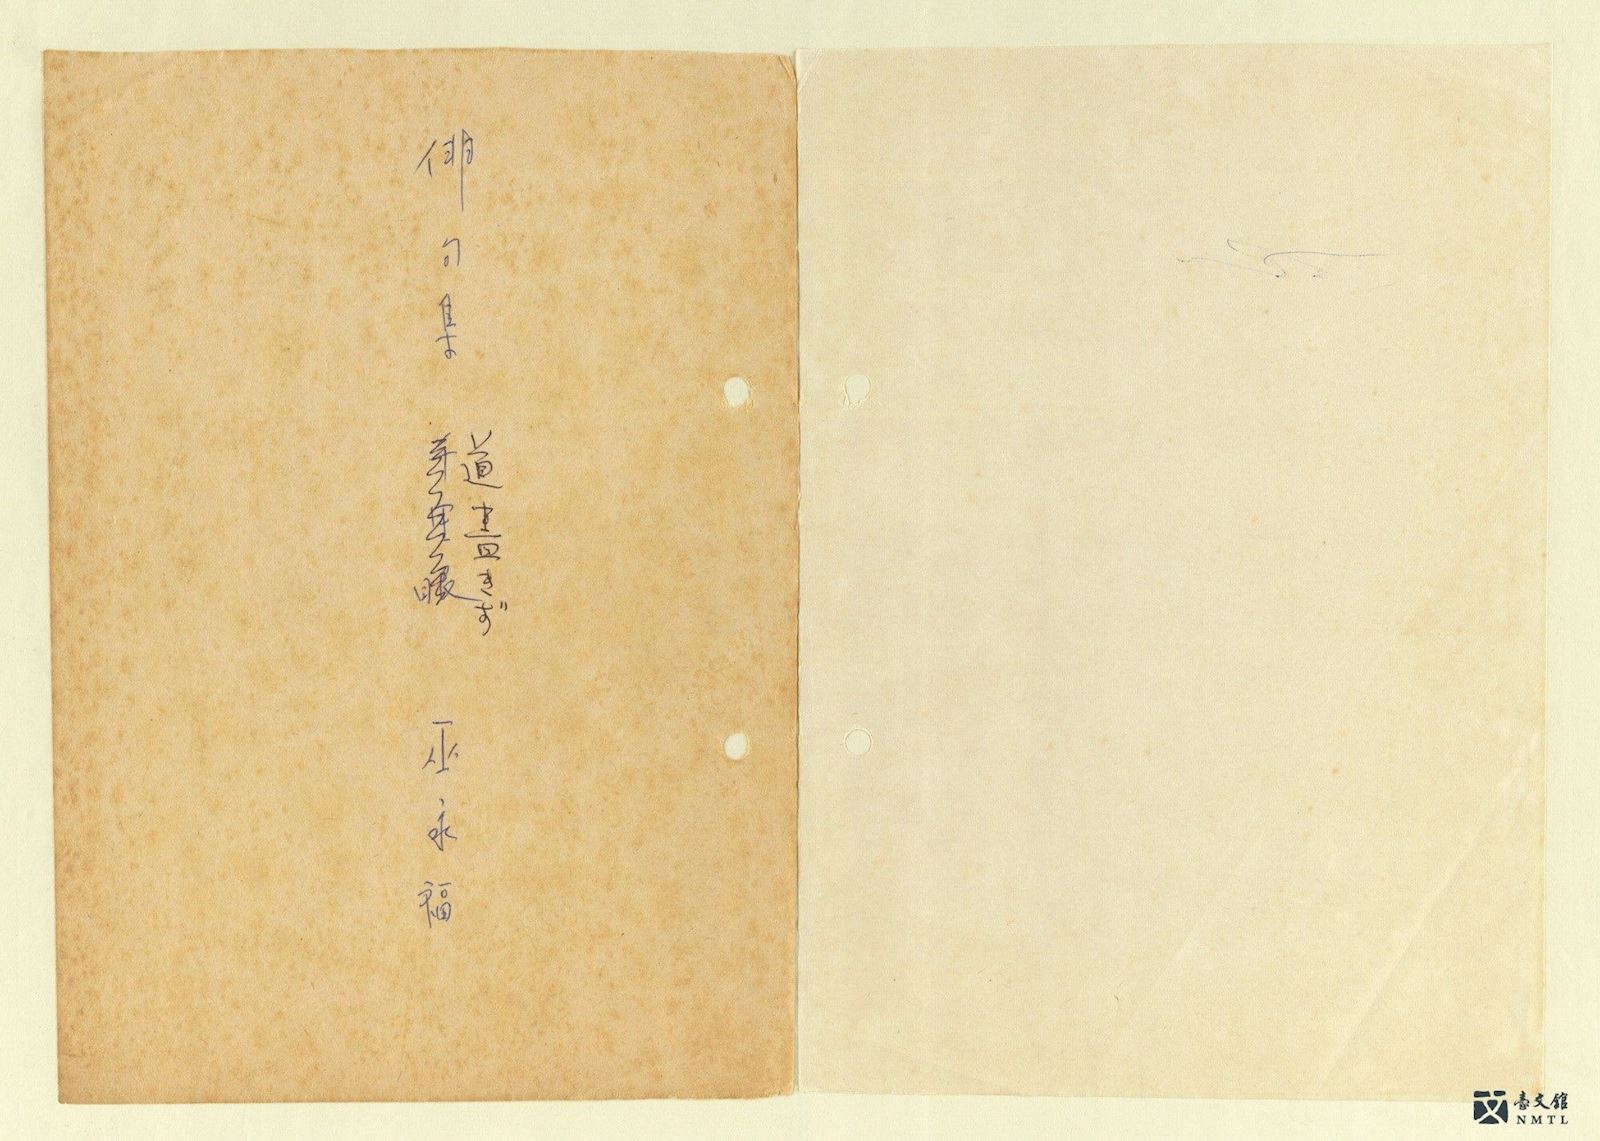 俳句集
道盡きず
巫永福
臺文館
NMTL